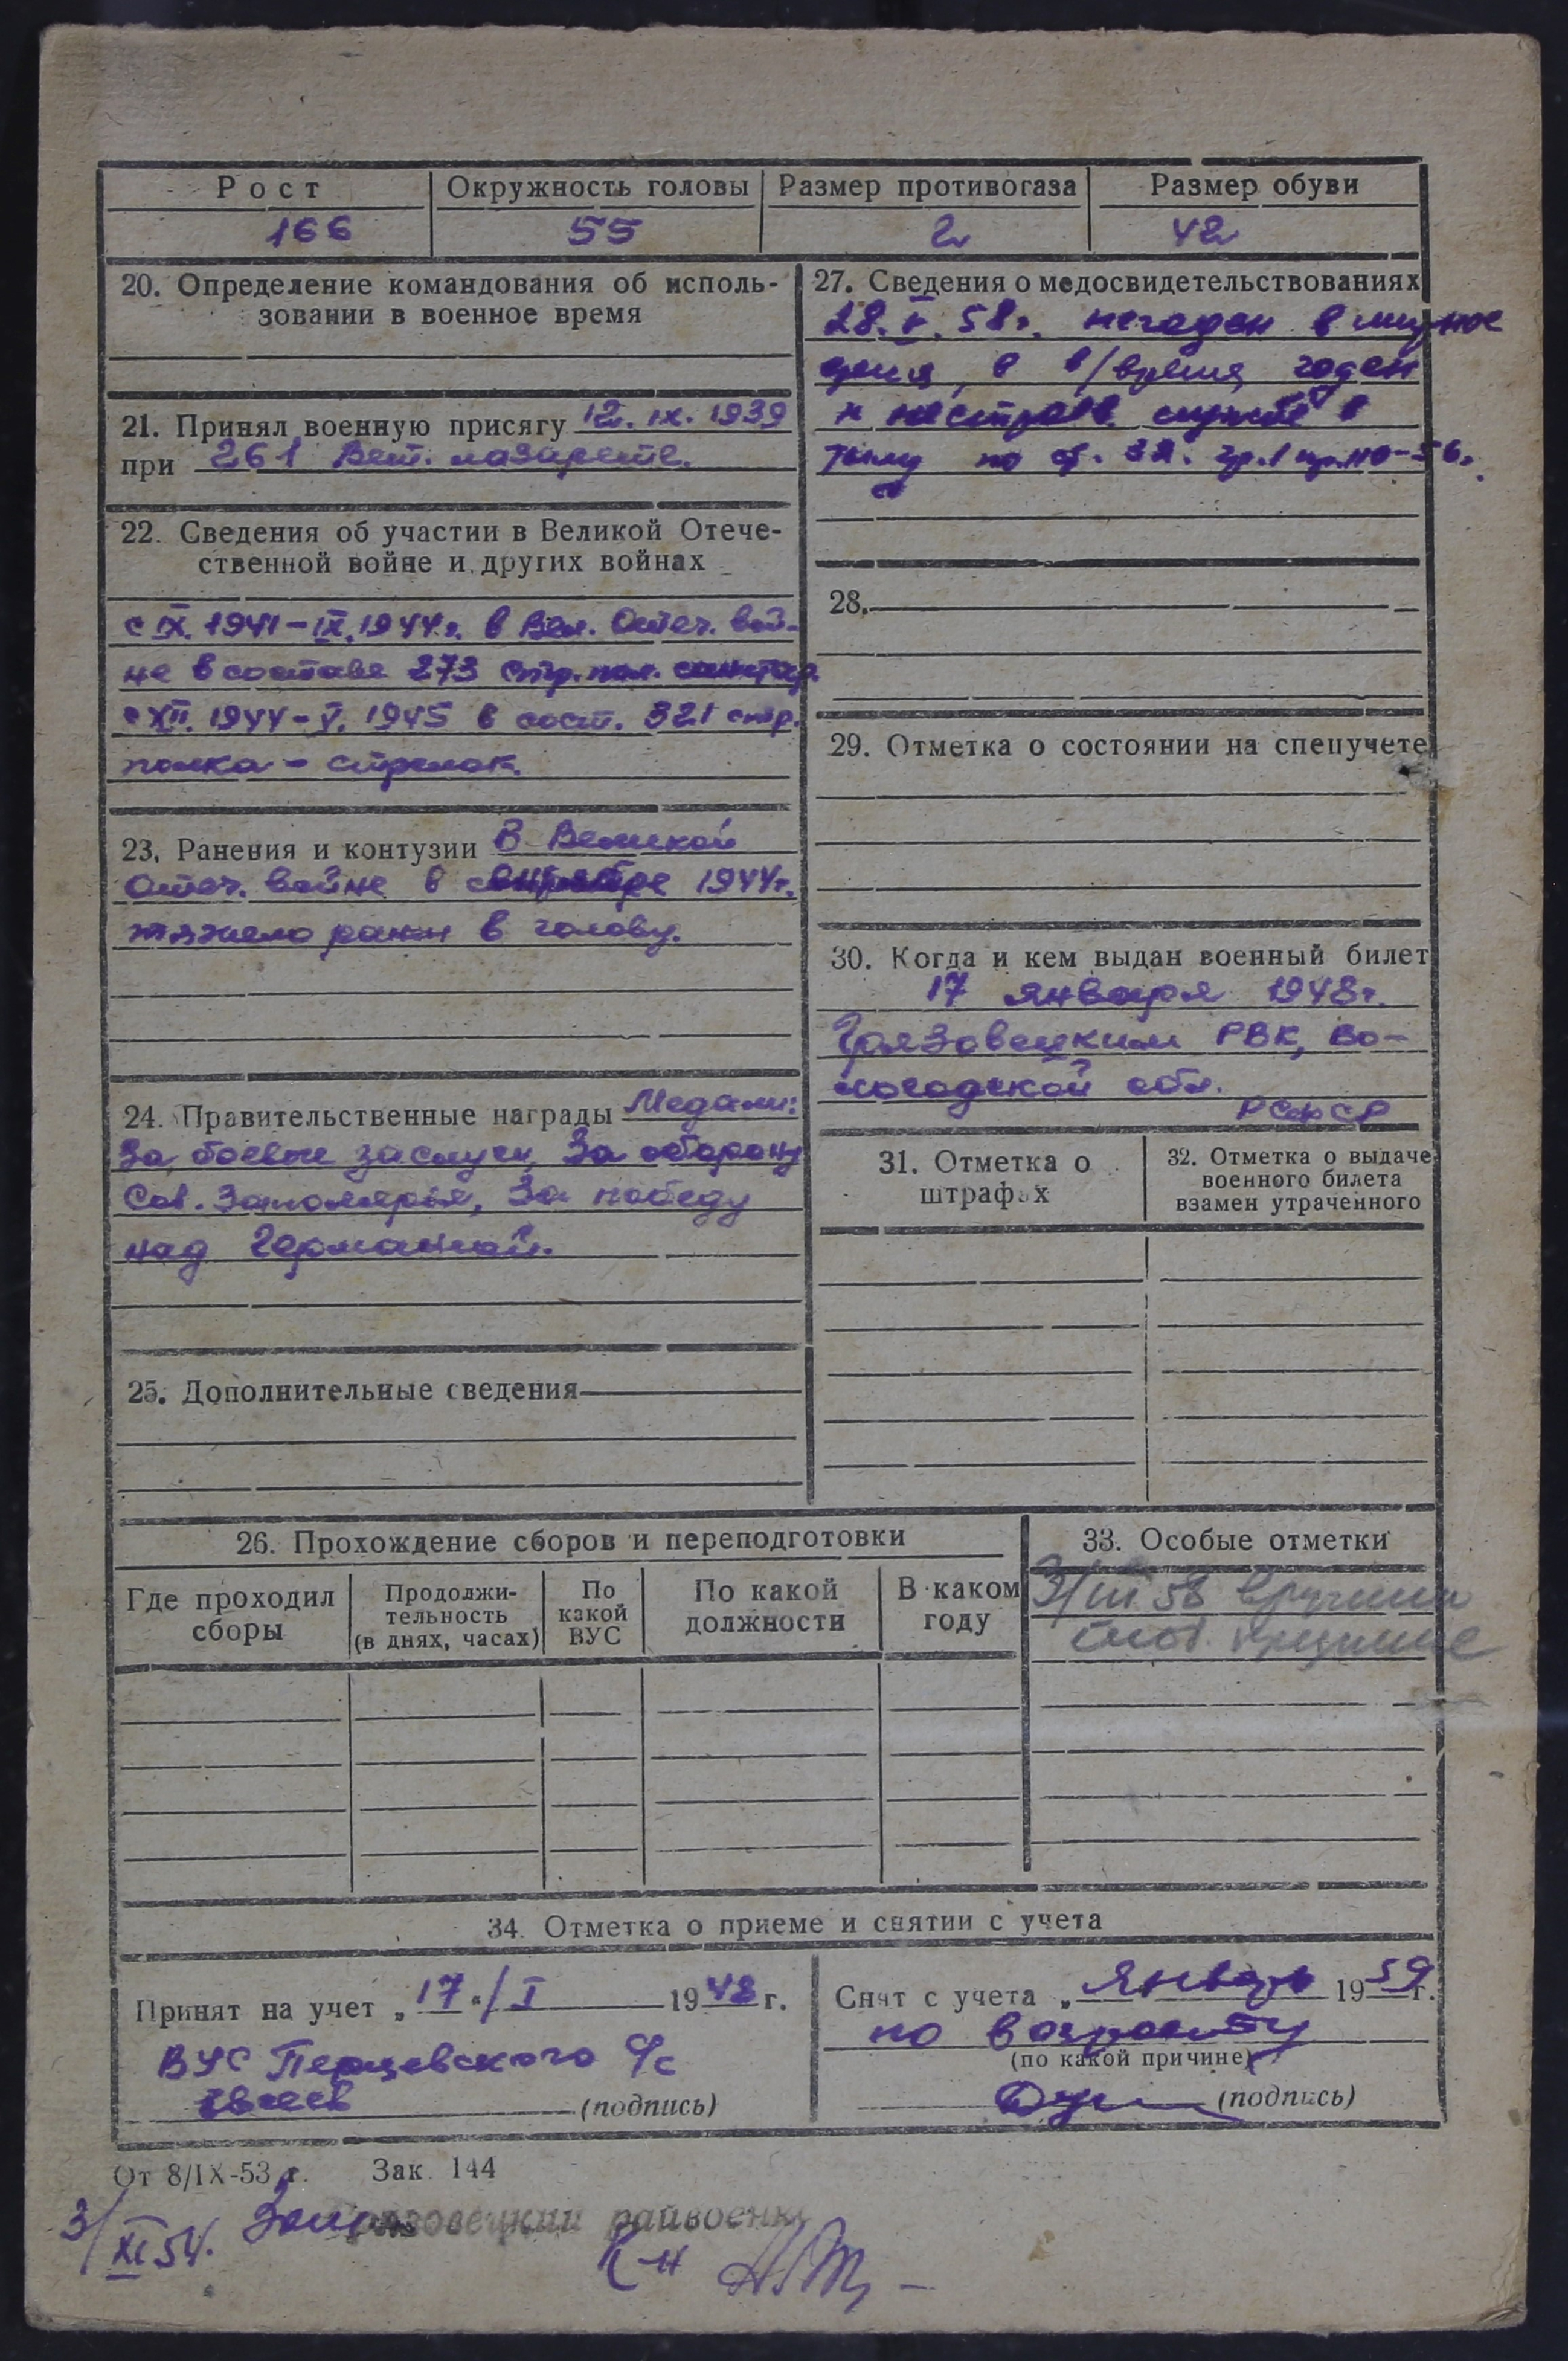 Рост
Окружность головы
Размер противогаза
Размер обуви
166
55
2
42
20. Определение командования об исполь-
зовании в военное время
21. Принял военную присягу 12. IX. 1939
при 261 Вет. лазарете.
22. Сведения об участии в Великой Отече-
ственной войне и других войнах
с IX. 1941-IX. 1944 г. в Вел. Отеч. вой-
не в составе 273 стр. пол. санитар
с XII. 1944-V. 1945 в сост. 321 стр.
полка - стрелок.
23. Ранения и контузии В Великой
Отеч. войне в сентябре 1944 г.
тяжело ранен в голову.
24. Правительственные награды Медали:
За боевые заслуги, За оборону
Сов. Заполярья, За победу
над Германией.
25. Дополнительные сведения
27. Сведения о медосвидетельствованиях
28. V. 58 г. негоден в мирное
время, в в/время годен
к нестроев. службе в
тылу по ст. 32. гр. I пр. 110-56 г.
28.
29. Отметка о состоянии на спецучете
30. Когда и кем выдан военный билет
17 января 1948 г.
Грязовецким РВК, Во-
логодской обл.
РСФСР
31. Отметка о
штрафах
32. Отметка о выдаче
военного билета
взамен утраченного
26. Прохождение сборов и переподготовки
Где проходил
сборы
Продолжи-
тельность
(в днях, часах)
По
какой
ВУС
По какой
должности
В каком
году
33. Особые отметки
3/III 58
34. Отметка о приеме и снятии с учета
Принят на учет „17"/I 1948 г.
ВУС Перцевского с/с
(подпись)
Снят с учета „Январь 1959 г.
по возрасту
(по какой причине)
(подпись)
От 8/IX-53 г. Зак. 144
3/XI 54. Грязовецкий райвоенк
К-н